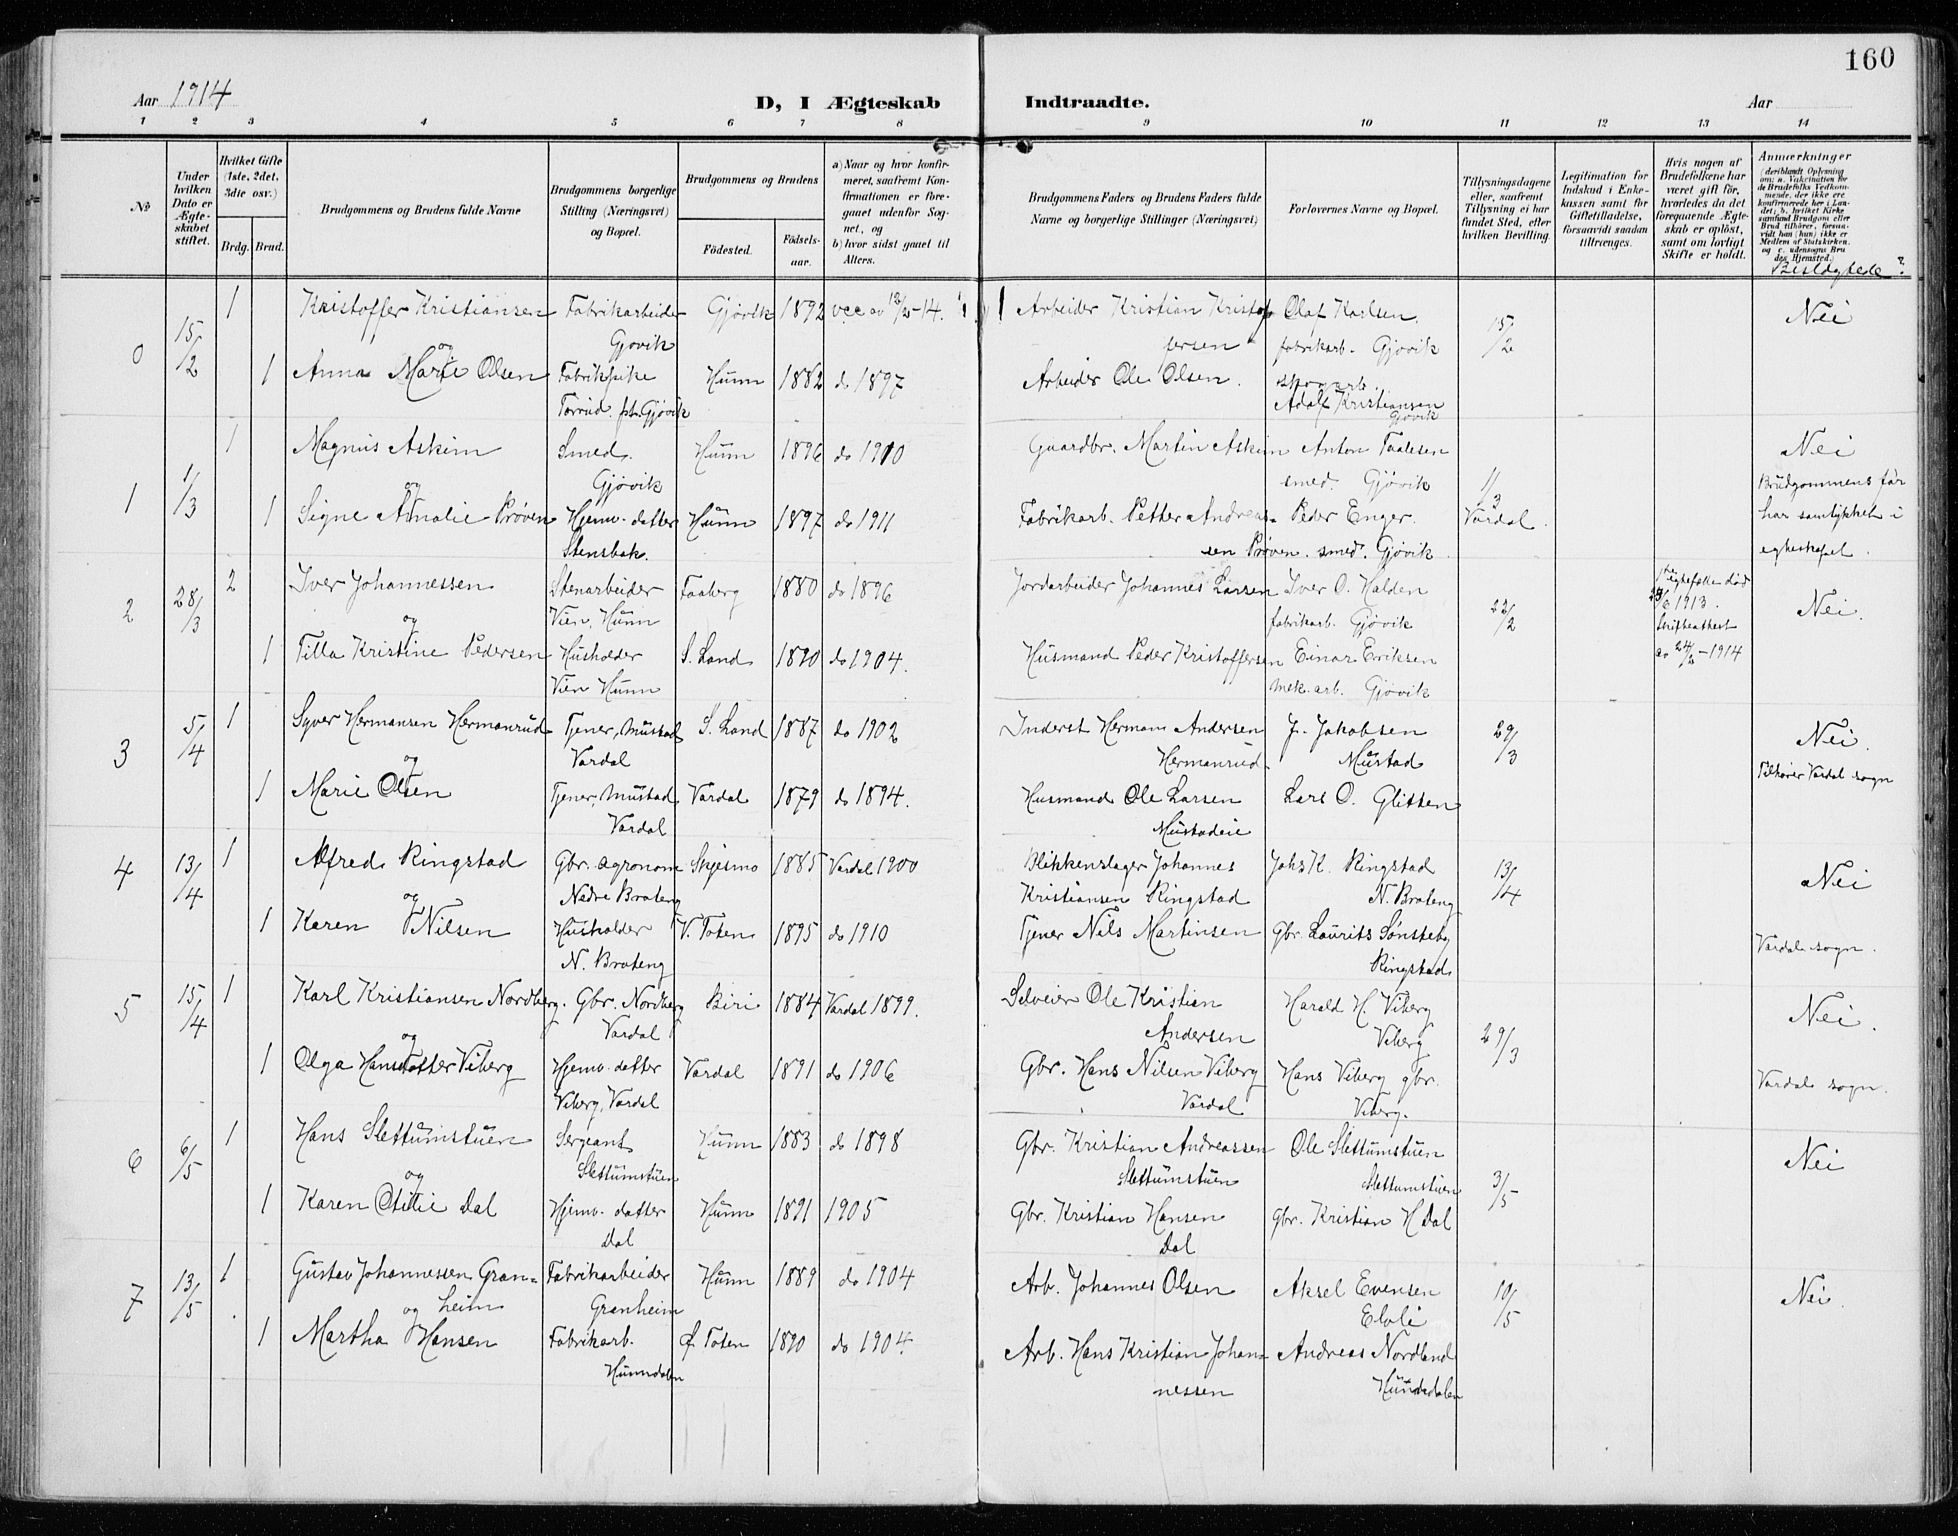 160
Aar 1914
D, I Ægteskab Indtraadte.
Aar
1 2 3 4 5 6 7 8 9 10 11 12 13 14
№
Under hvilken Dato er Ægteskabet stiftet.
Hvilket Gifte (1ste, 2det, 3die osv.)
Brdg. Brud.
Brudgommens og Brudens fulde Navne
Brudgommens borgerlige Stilling (Næringsvei) og Bopæl.
Brudgommens og Brudens
Födested. Födsels-aar.
a) Naar og hvor konfirmeret, saafremt Konfirmationen er foregaaet udenfor Sognet, og
b) hvor sidst gaaet til Alters.
Brudgommens Faders og Brudens Faders fulde Navne og borgerlige Stillinger (Næringsvei)
Forlovernes Navne og Bopæl.
Tillysningsdagene eller, saafremt Tillysning ei har fundet Sted, efter hvilken Bevilling.
Legitimation for Indskud i Enkekassen samt for Giftetilladelse, forsaavidt saadan tiltrænges.
Hvis nogen af Brudefolkene har været gift för, hvorledes da det foregaaende Ægteskab er oplöst, samt om lovligt Skifte er holdt.
Anmærkninger (deriblandt Oplysning om: a. Vakcination for de Brudefolks Vedkommende, der ikke ere konfirmerede her i Landet; b. hvilket Kirkesamfund Brudgom eller Brud tilhörer, forsaavidt han (hun) ikke er Medlem af Statskirken, og c. udensogns Brudes Hjemsted.)
Beslægtede?
0 15/2 1 Kristoffer Kristiansen Fabrikarbeider Gjøvik 1892 18/2-14. Arbeider Kristian Kristof Olaf Karlsen 15/2 Nei
og Gjøvik fersen fabrikarb. Gjøvik
1 Anna Marie Olsen Fabrikpike Hunn 1882 do 1897 Arbeider Ole Olsen. skogarb.
Gjøvik Adolf Kristiansen
Gjøvik
1 1/3 1 Magnus Askim Smed. Hunn 1896 do 1910 Gaardbr. Martin Askim Anton Taalesen 1/3 Nei
og Gjøvik smed. Gjøvik Brudgommens far
1 Signe Amalie Prøven Hjemv. datter Hunn 1897 do 1911 Fabrikarb. Petter Andreas- Peder Enger. Vardal. har samtykket i
Stensbak. sen Prøven. smed. Gjøvik egteskapet.
2 28/3 2 Iver Johannessen Stenarbeider Faaberg 1880 do 1896 Jordarbeider Johannes Larsen Iver O. Halden 22/2 egtefælle død Nei.
og Vien, Hunn fabrikarb. Gjøvik 1913.
1 Tilla Kristine Pedersen Husholder S. Land 1890 do 1904. Husmand Peder Kristoffersen Einar Eriksen Skifteattest
Vien Hunn mek. arb. Gjøvik av 24/2-1914
3 5/4 1 Syver Hermansen Hermanrud Tjener, Mustad S. Land 1887 do 1902 Inderst Herman Andersen J. Jakobsen 29/3 Nei.
og Vardal Hermanrud Mustad
1 Marie Olsen Tjener, Mustad Vardal 1879 do 1894. Husmand Ole Larsen Lars O. Glitten Tilhører Vardal sogn
Vardal Mustadeie
4 13/4 1 Alfred Ringstad Gbr. agronom Skjesmo 1885 Vardal 1900 Blikkenslager Johannes Johs K. Ringstad 13/4 Nei
og Nedre Brateng Kristiansen Ringstad N. Brateng
1 Karen Nilsen Husholder V. Toten 1895 do 1910 Tjener Nils Martinsen Gbr. Laurits Sønsteby Vardal sogn.
N. Brateng Ringstad
5 15/4 1 Karl Kristiansen Nordberg. Gbr. Nordberg Biri 1884 Vardal 1899. Selveier Ole Kristian Harald H. Viberg 29/3 Nei.
og Vardal Andersen Viberg
1 Olga Hansdatter Viberg Hjemv. datter Vardal 1891 do 1906 Gbr. Hans Nilsen Viberg Hans Viberg gbr. Vardal sogn.
Viberg, Vardal Vardal Viberg.
6 6/5 1 Hans Slettumstuen Sergeant Hunn 1883 do 1898 Gbr. Kristian Andreassen Ole Slettumstuen 3/5 Nei
og Slettumstuen Slettumstuen Slettumstuen
1 Karen Otilie Dal Hjemv. datter Hunn 1891 1905 Gbr. Kristian Hansen gbr. Kristian H Dal
Dal Dal
7 13/5 1 Gustav Johannessen Gran= Fabrikarbeider Hunn 1889 do 1904 Arb. Johannes Olsen Aksel Evensen 10/5 Nei.
og heim Granheim
1 Martha Hansen Fabrikarb. Ø. Toten 1890 do 1904. Arb. Hans Kristian Johan- Andreas Nordland
Hunndalen nessen Hunndalen